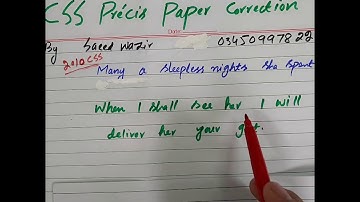 CSS Précis Paper Correction
Date:
By Saeed Wazir 03450997822
2010 CSS
Many a sleepless nights she spent
When I shall see her I will
deliver her your